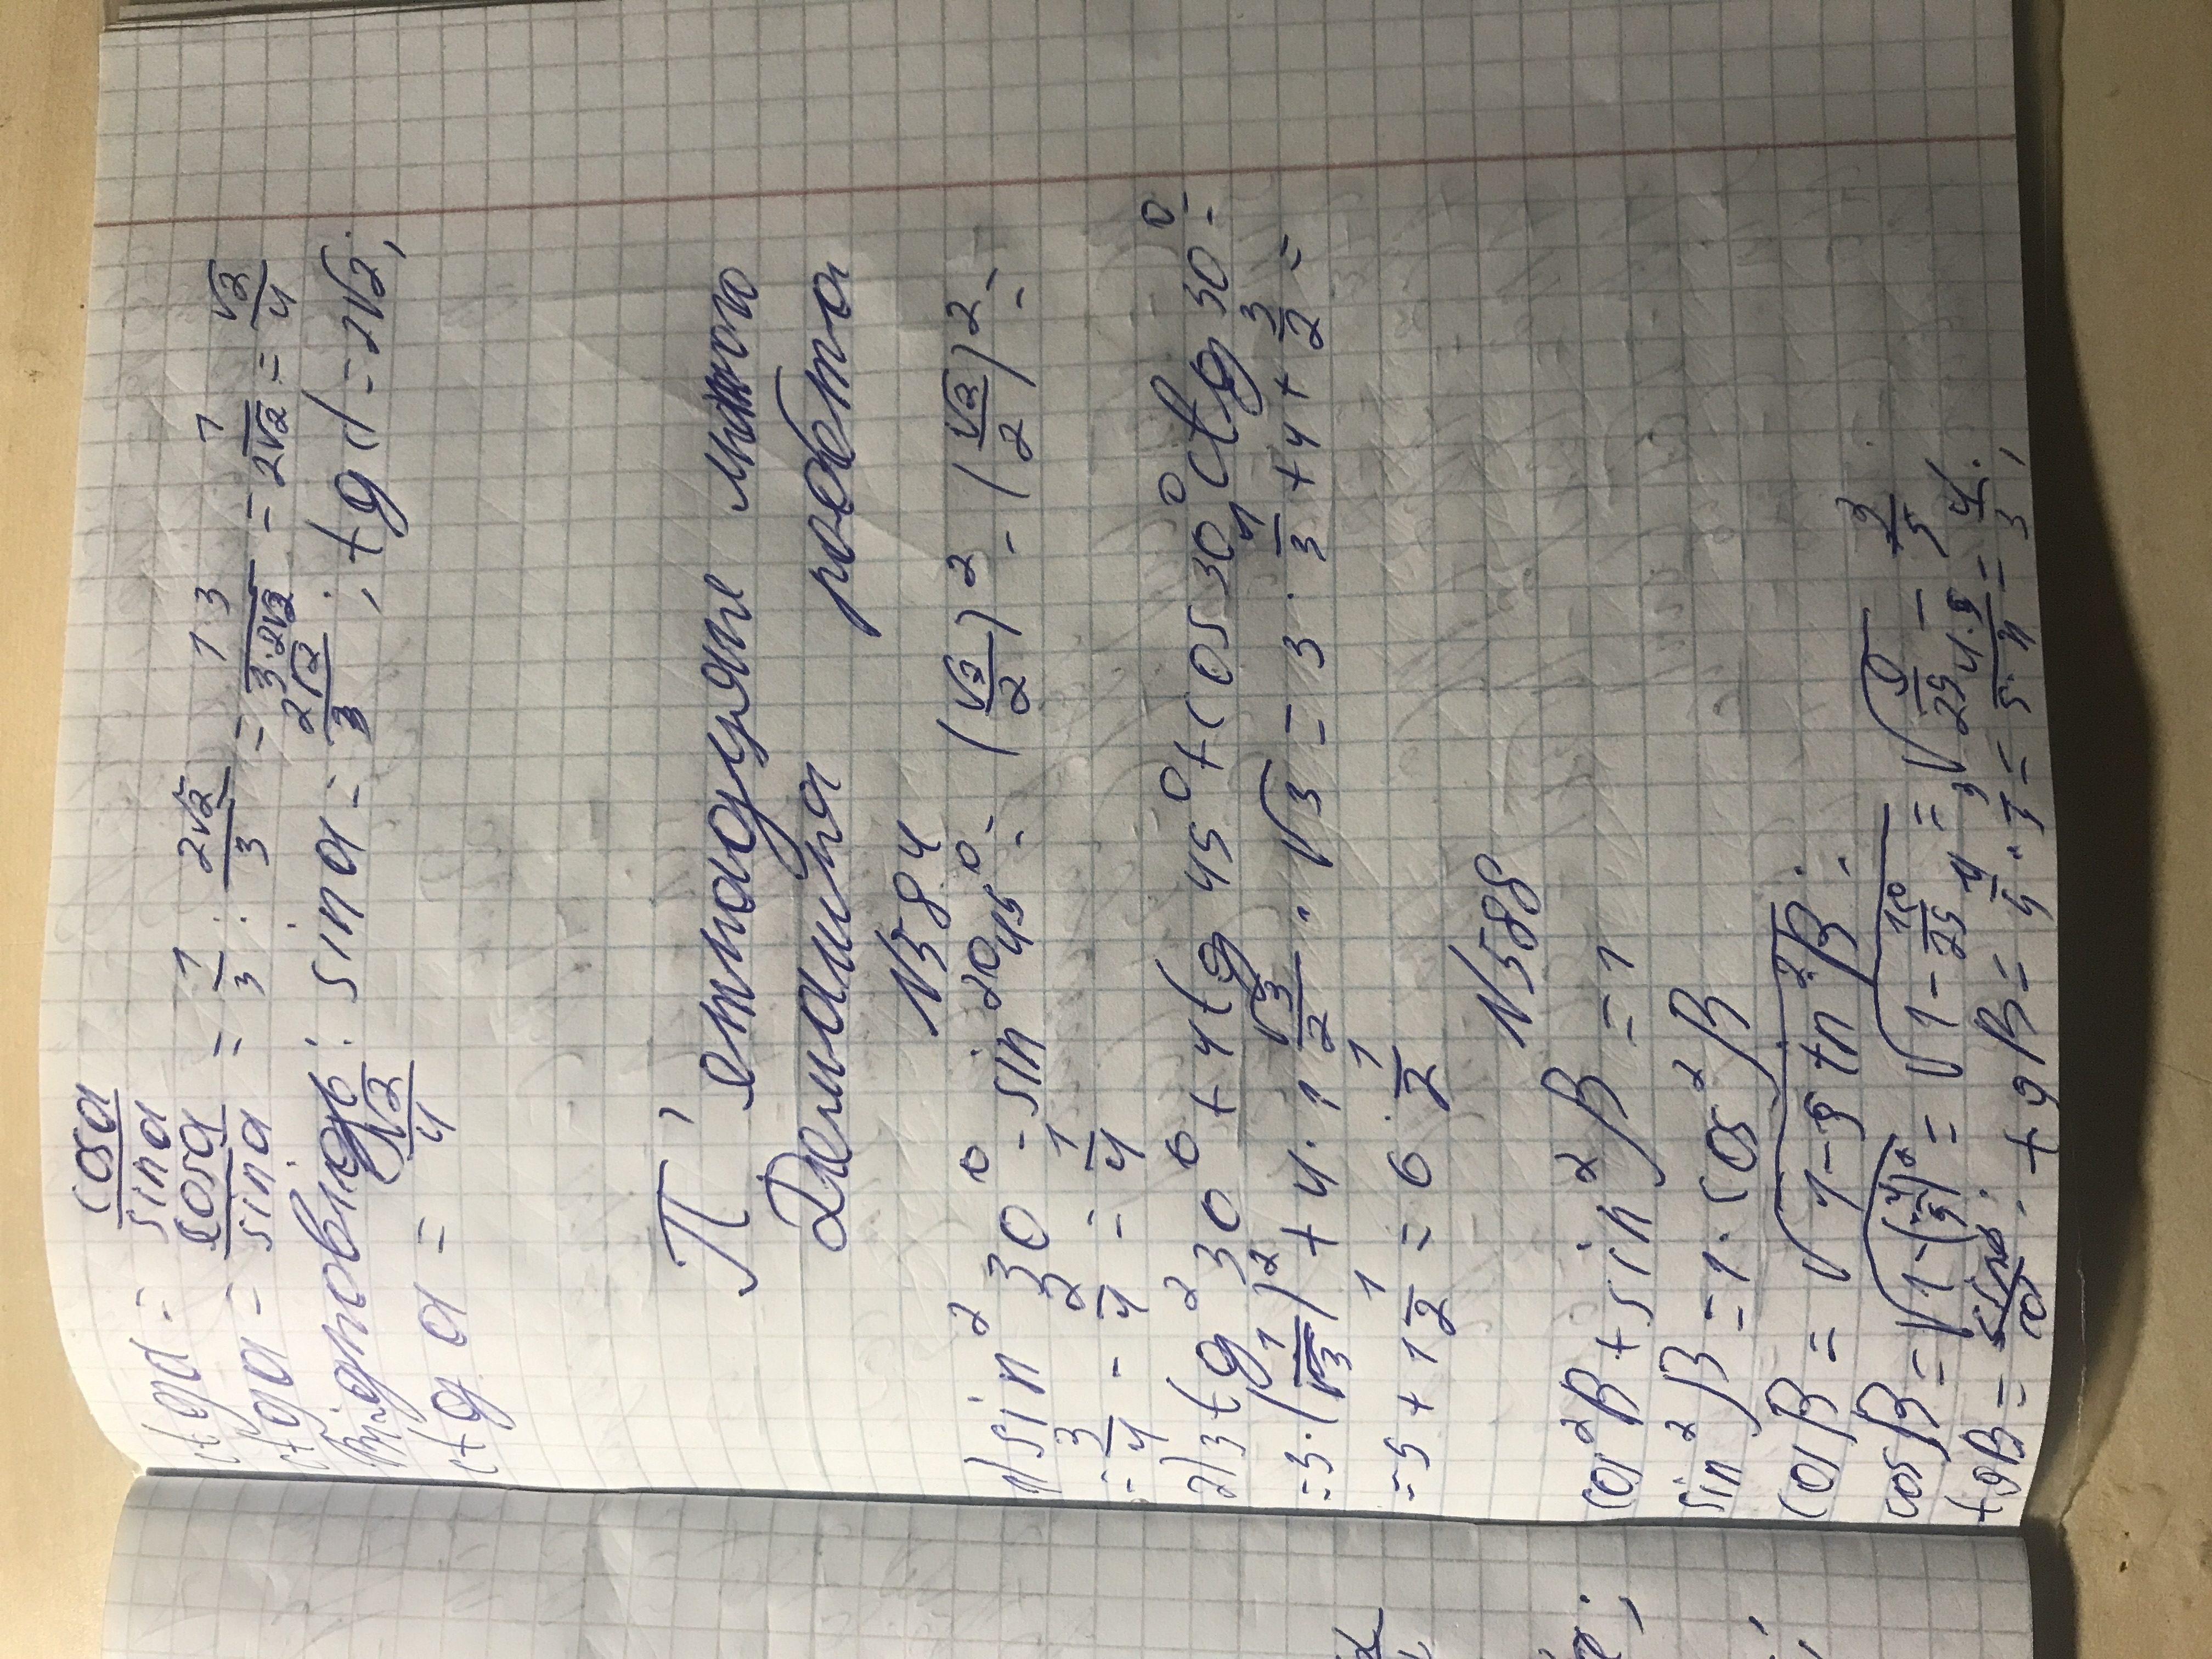 ctgα = cosα/sinα
ctgα = cosα/sinα = 1/3 : 2√2/3 = 1·3/3·2√2 = 1/2√2 = √2/4
Відповідь: sinα = 2√2/3; tgα = 2√2;
ctgα = √2/4
П'ятнадцяте лютого
Домашня робота
№584
1) sin² 30° - sin² 45° = (√3/2)² - (√2/2)² =
= 3/4 - 2/4 = 1/4
2) 3tg² 30° + 4tg 45° + cos30° ctg 30° =
= 3·(1/√3)² + 4·1 √3/2 · √3 = 3 · 1/3 + 4 + 3/2 =
= 5 + 1 1/2 = 6 1/2
№588
cos²β + sin²β = 1
sin²β = 1 - cos²β
cosβ = √1 - sin²β;
cosβ = √1-(4/5)² = √1 - 16/25 = √9/25 = 3/5
tgβ = sinβ/cosβ; tgβ = 4/5 : 3/5 = 4·5/5·3 = 4/3;